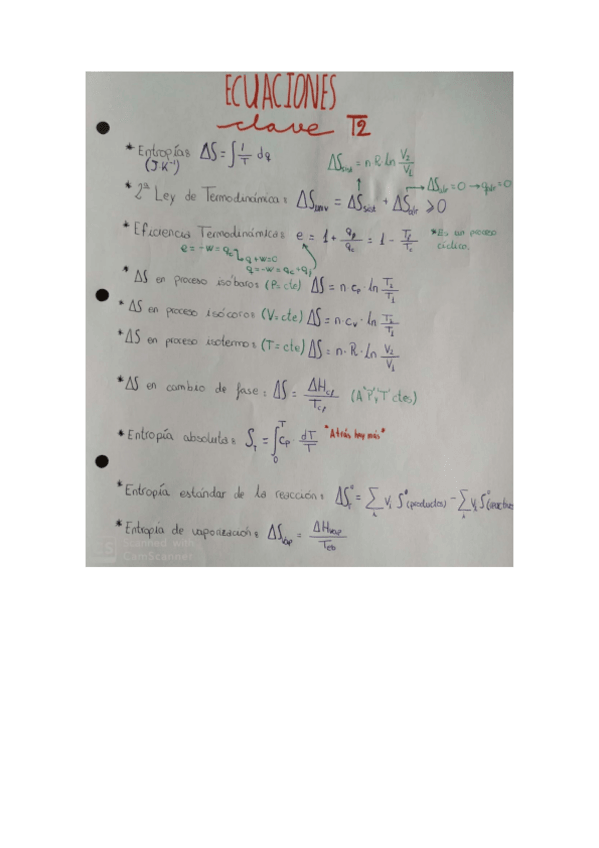 ECUACIONES
clave T2
* Entropía: ΔS = ∫ 1/T dq
(J·K⁻¹)
ΔSsist = n R ln V2/V1
* 2ª Ley de Termodinámica: ΔSuniv = ΔSsist + ΔSalr ≥ 0
ΔSalr = 0 → qalr = 0
* Eficiencia Termodinámica: e = 1 + qf/qc = 1 - Tf/Tc
* Es un proceso cíclico.
q + w = 0
q = -w = qc + qf
* ΔS en proceso isóbaro: (P = cte) ΔS = n cp · ln T2/T1
* ΔS en proceso isócoro: (V = cte) ΔS = n · cv · ln T2/T1
* ΔS en proceso isotermo: (T = cte) ΔS = n · R · ln V2/V1
* ΔS en cambio de fase: ΔS = ΔHcf/Tcf (A "P" y "T" ctes)
* Entropía absoluta: ST = ∫₀ᵀ cp · dT/T "Atrás hay más"
* Entropía estándar de la reacción: ΔS°r = Σi νi S°(productos) - Σi νi S°(reactivos
* Entropía de vaporización: ΔSvap = ΔHvap/Teb
Scanned with
CamScanner